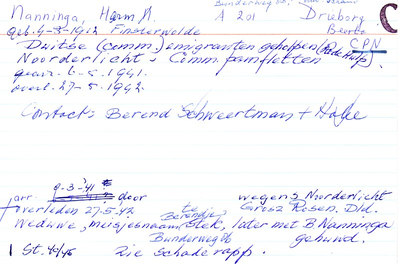 Nanninga, Harm A. Bunderweg 
A 201 Drieborg
geb. 4-3-1912 Finsterwolde Beerta
Duitse (comm.) emigranten geholpen (Rode Hulp) CPN
Noorderlicht - Comm. pamfletten
gearr. 6-5-1941.
overl. 27-5-1942.
Contact: Berend Schweertman +
9-3-'41
arr. door wegens Noorderlicht
overleden 27.5.42 te Gross Rosen. Dld.
Weduwe, meisjesnaam Berendje Stek, later met B Nanninga
Bunderweg gehuwd.
St. 40/45 Zie Schade rapp.
C